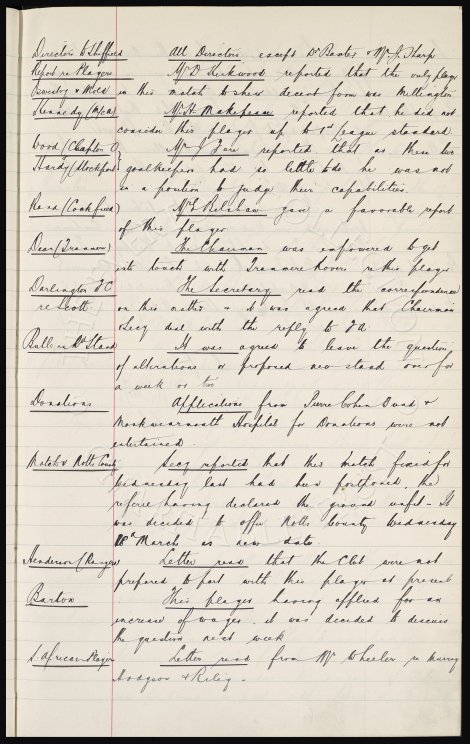 Directors to Sheffield All Directors except Dr Baxter & Mr J. Sharp
Report re Players Mr D. Kirkwood reported that the only player
Oswestry v Mold in this match to shew decent form was Millington
Kennedy (McA) Mr H. Makepeace reported that he did not
consider this player up to 1st league standard
Wood (Clapton O) Mr J. Fare reported that as these two
Hardy (Stockport) goalkeepers had so little to do he was not
in a position to judge their capabilities.
Rand (Cockfield) Mr T. Kelshaw gave a favorable report
of this player
Dean (Tranmere) The Chairman was empowered to get
into touch with Tranmere Rovers re this player
Darlington FC The Secretary read the correspondence
re Scott on this matter & it was agreed that Chairman
& Secy deal with the reply to F.A.
Bullens Rd Stand It was agreed to leave the question
of alterations or proposed new stand over for
a week or two
Donations Applications from Cohen Fund &
Monkwearmouth Hospital for Donations were not
entertained
Match v Notts County Secy reported that this match fixed for
Wednesday last had been postponed, the
referee having declared the ground unfit - It
was decided to offer Notts County Wednesday
18th March as new date.
Henderson (Rangers) Letter read that the Club were not
prepared to part with this player at present
Barton This player having applied for an
increase of wages. it was decided to discuss
the question next week
S. African Players Letter read from Mr Wheeler re Murray
Hodgson & Riley -